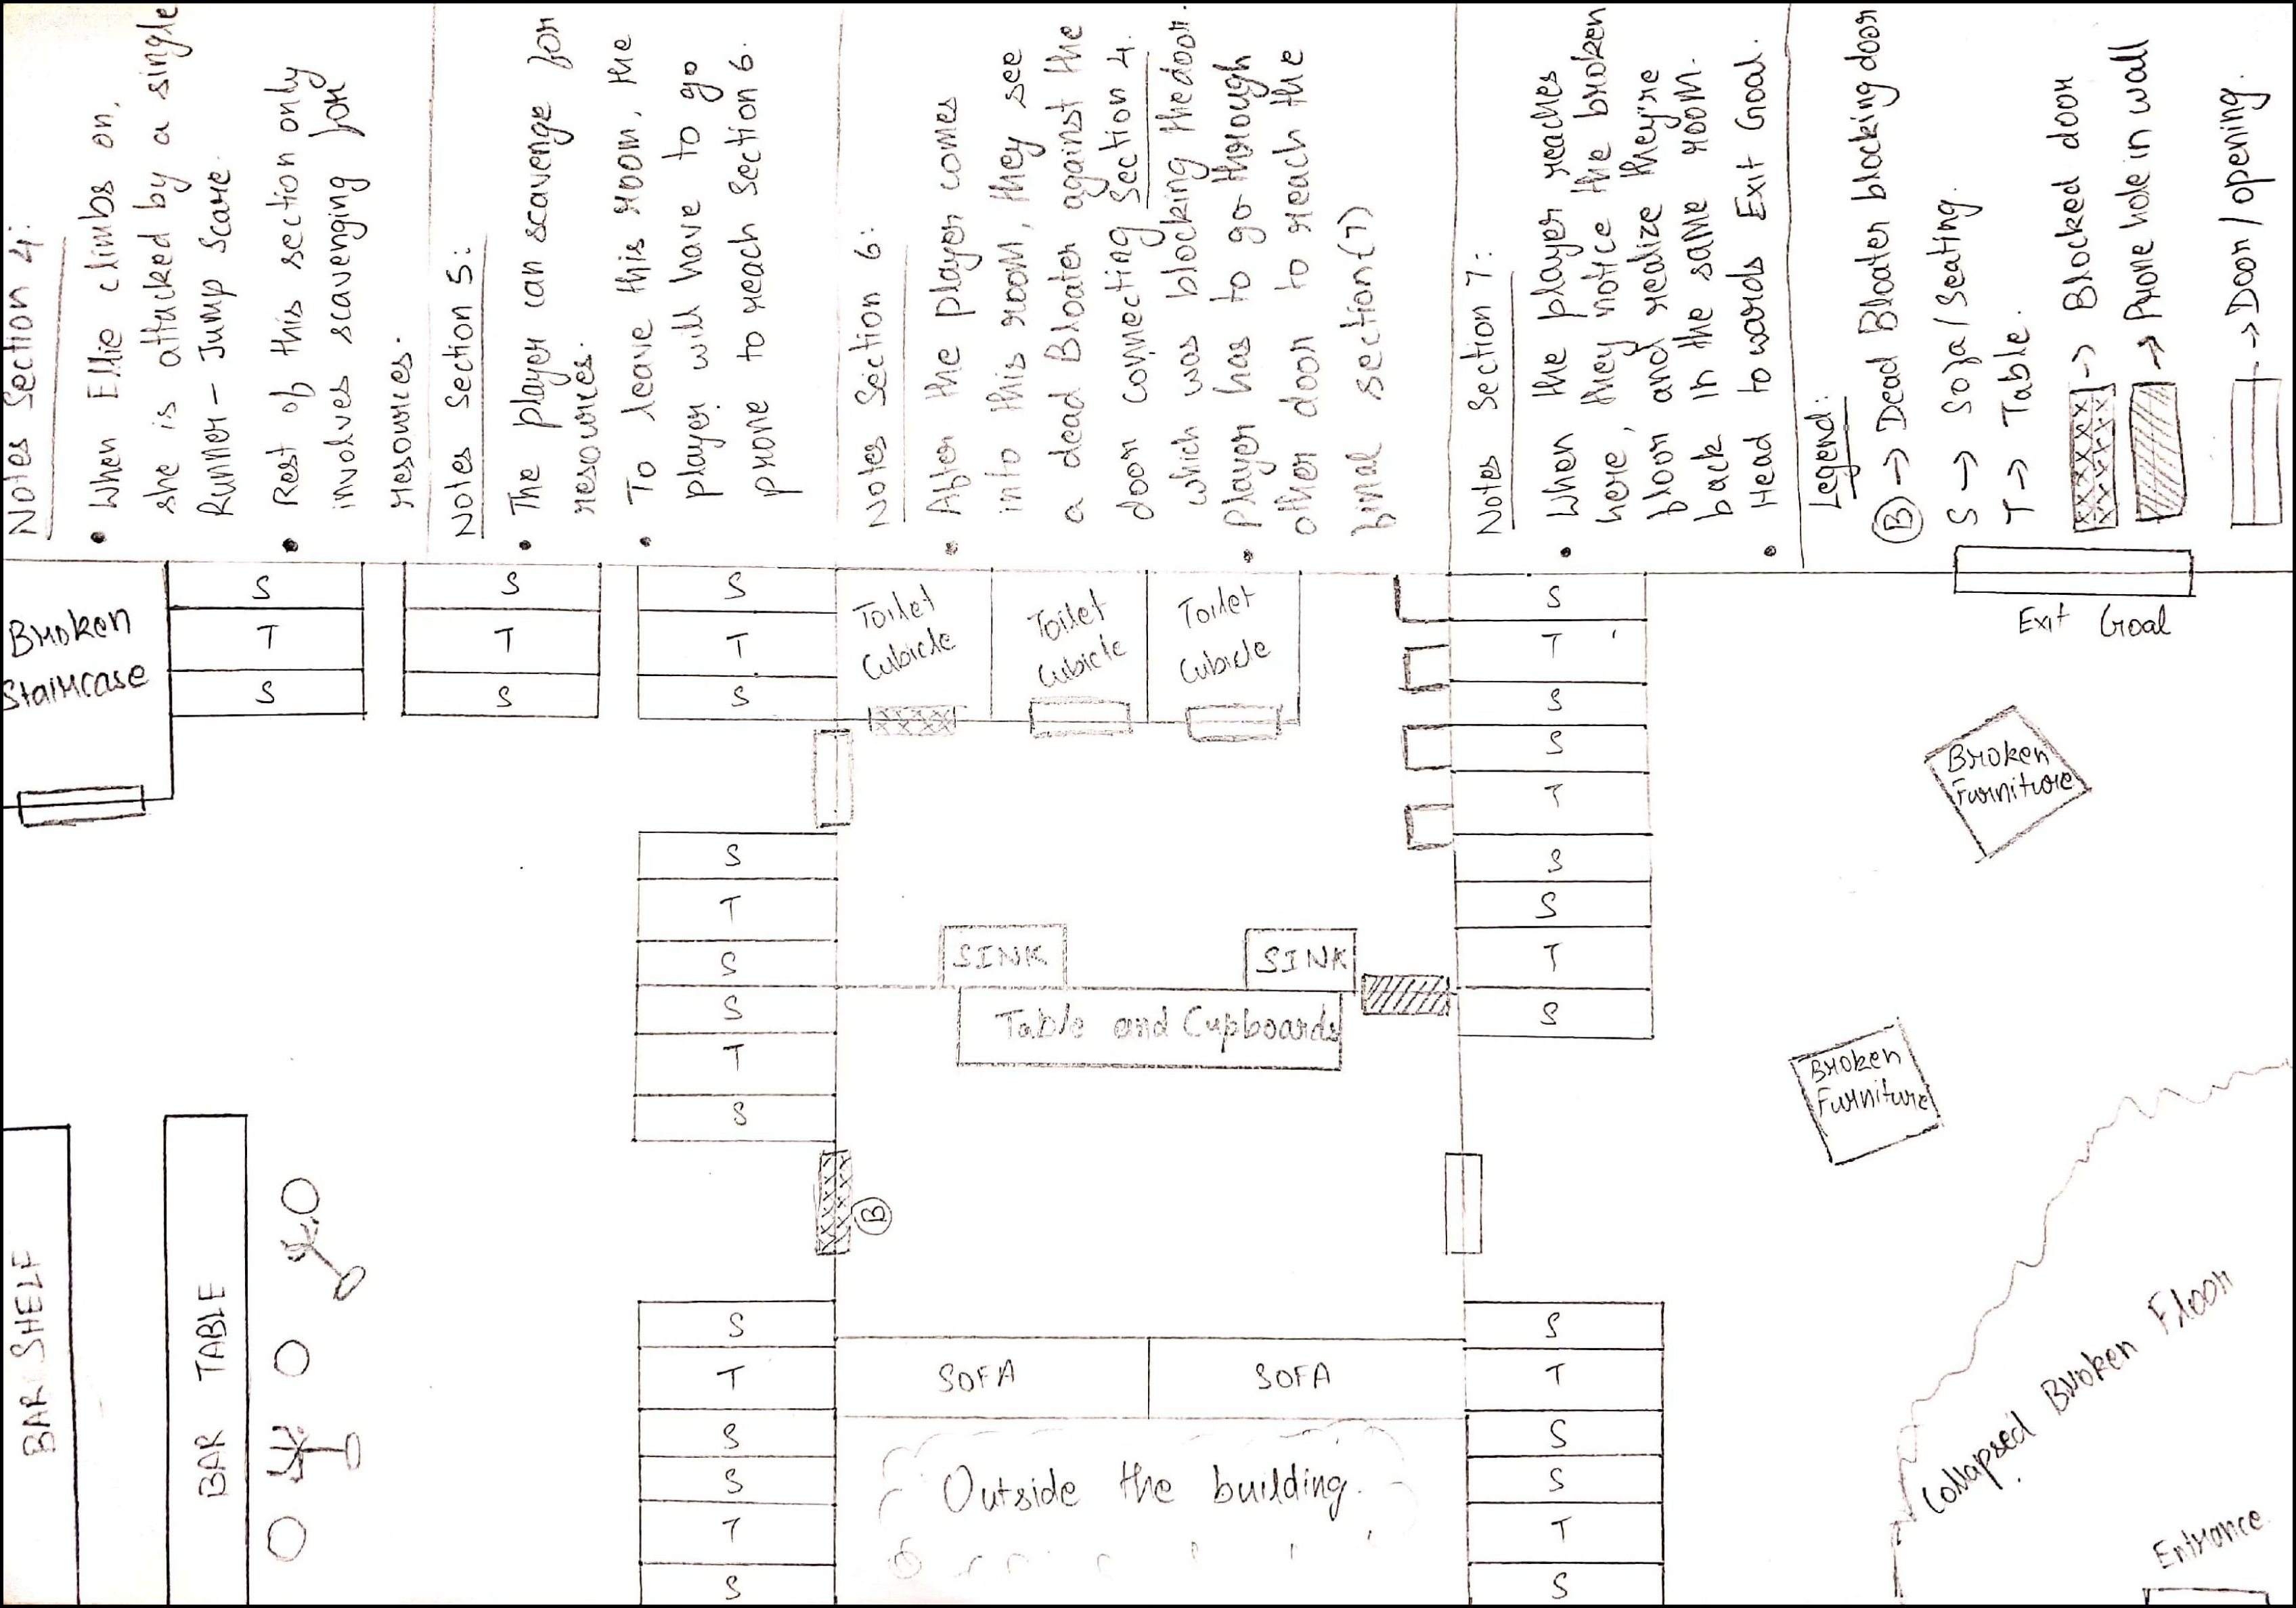 Notes Section 4:
• When Ellie climbs on,
she is attacked by a single
Runner - Jump Scare.
• Rest of this section only
involves scavenging for
resources.
Notes Section 5:
• The player can scavenge for
resources.
• To leave this room, the
player will have to go
prone to reach Section 6.
Notes Section 6:
• After the player comes
into this room, they see
a dead Bloater against the
door connecting Section 4.
which was blocking the door.
• Player has to go through
other door to reach the
final section(7)
Notes Section 7:
• When the player reaches
here, they notice the broken
floor and realize they're
back in the same room.
• Head towards Exit Goal.
Legend:
B → Dead Bloater blocking door
S → Sofa/Seating.
T → Table.
→ Blocked door
→ Prone hole in wall
→ Door/opening.
Broken
Staircase
S
T
S
S
T
S
S
T
S
Toilet
Cubicle
Toilet
Cubicle
Toilet
Cubicle
S
T
S
S
T
S
S
T
S
Exit Goal
Broken
Furniture
S
T
S
S
T
S
SINK
SINK
Table and Cupboards
Broken
Furniture
BAR SHELF
BAR TABLE
B
S
T
S
S
T
S
SOFA
SOFA
Outside the building.
S
T
S
S
T
S
Collapsed Broken Floor
Entrance